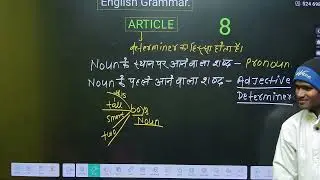 English Grammar.
ARTICLE
8
determiner का हिस्सा होता है।
Noun के स्थान पर आने वाला शब्द - Pronoun
Noun के पहले आने वाला शब्द - Adjective
Determiner
tall
smart
two
boys
Noun